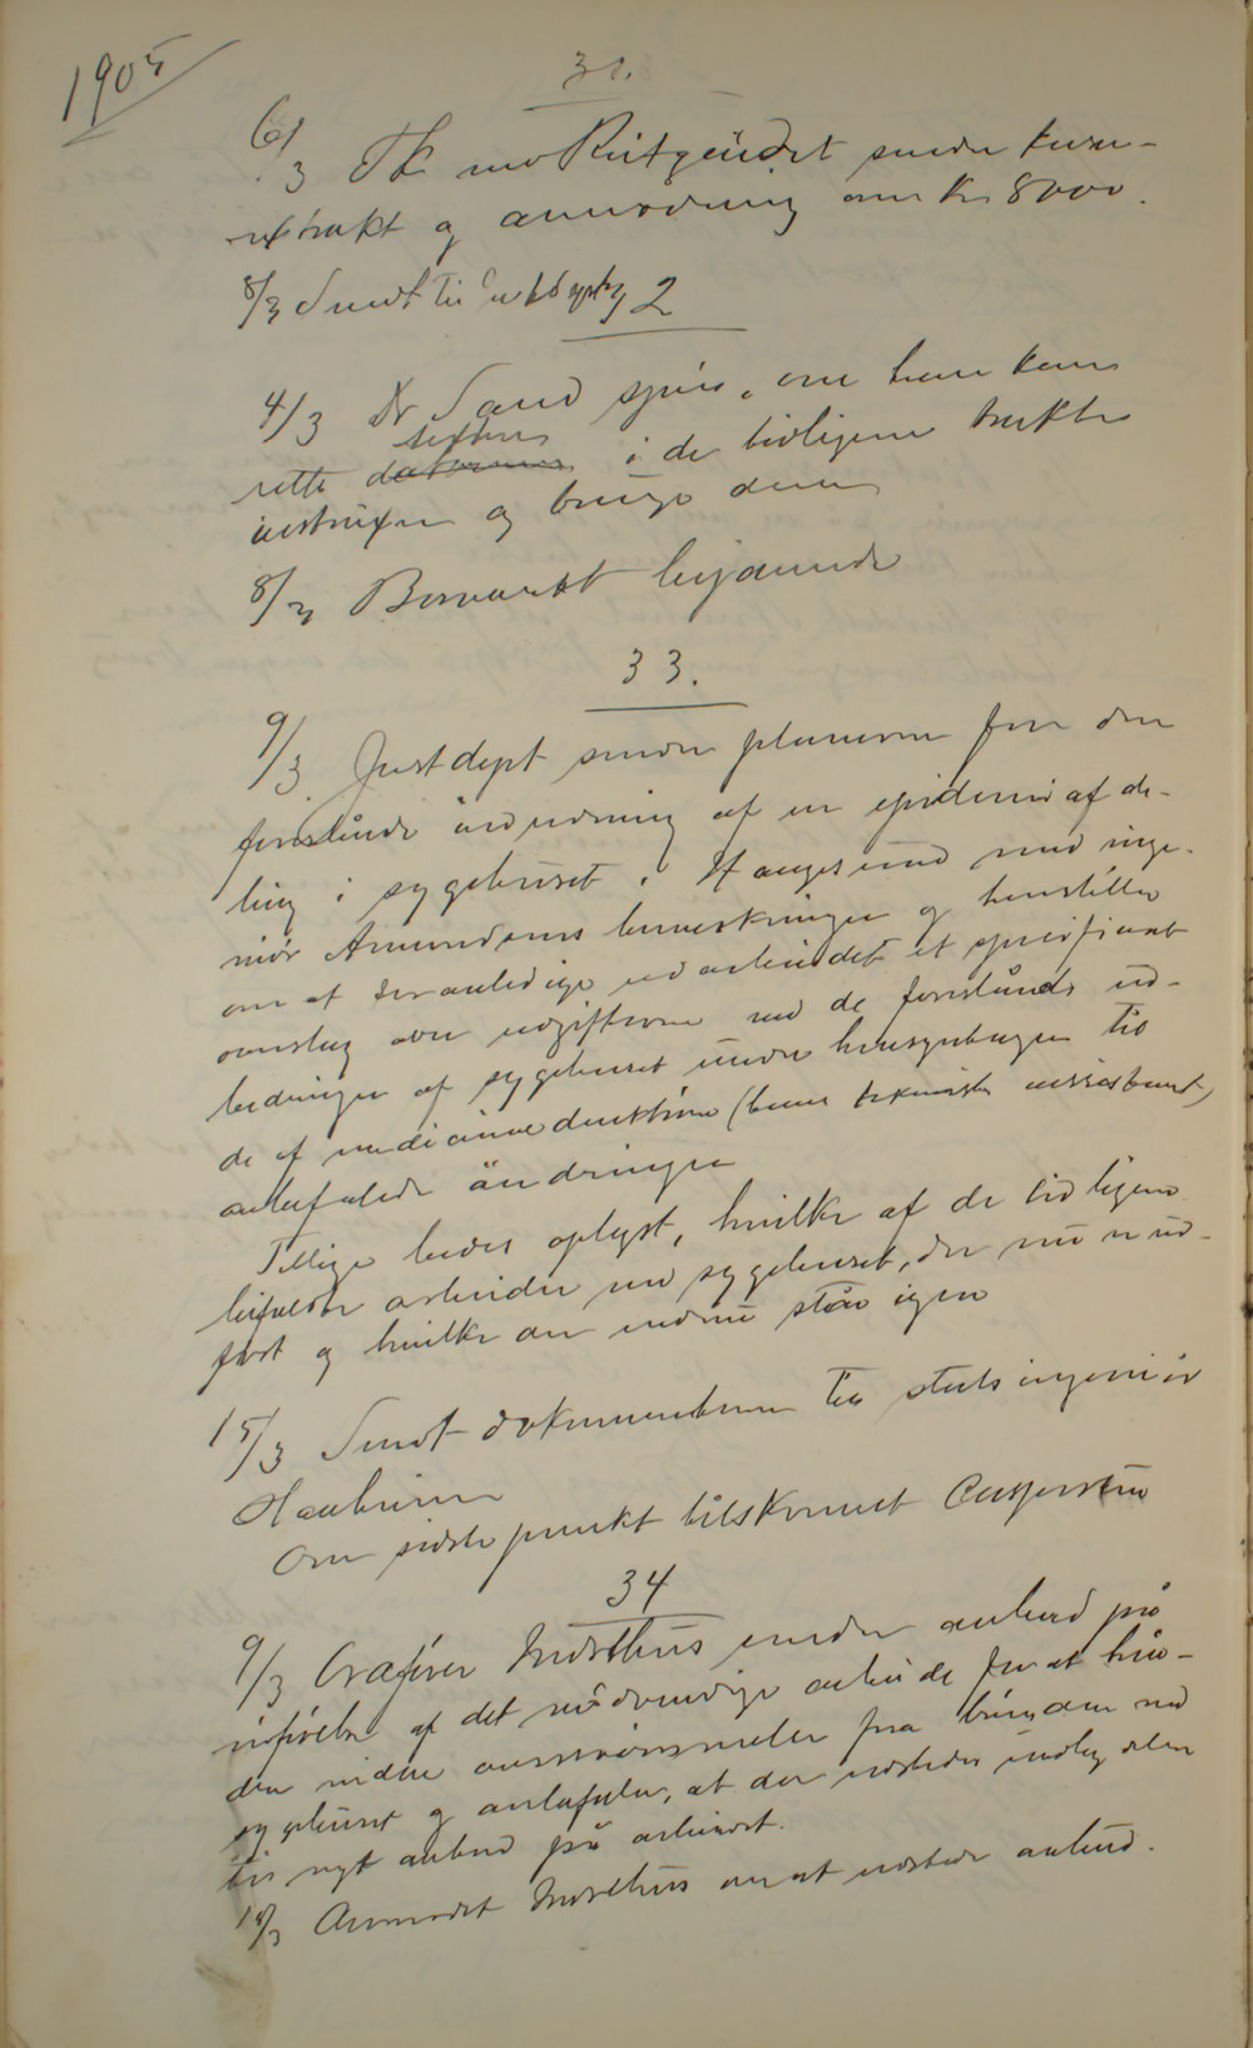 1905
31.
6/3 Tk ved Reitgjerdet sender kasse-
extrakt og anmodning om kr 8000.
8/3 Sendt til
2
4/3 Dr Sand spør, om han kan
rette texten i de tidligere trykte
instruxer og bruge dem
8/3 Besvaret bejaende
33.
9/3. Justdept sender planerne for den
foreslåede indredning af en epidemiafde-
ling i sygehuset i Haugesund med inge-
niør Amundsens bemerkninger og henstiller
om at foranledige udarbeidet et specificeret
overslag over udgifterne ved de foreslåede ud-
bedringer af sygehuset under hensyntagen til
de af medicinaldirektøren (hans tekniske assistent)
anbefalede ändringer
Tillige bedes oplyst, hvilke af de tidligere
bifaldte arbeider ved sygehuset, der nu er ud-
ført og hvilke der endnu står igen
15/3 Sendt dokumenterne til stadsingeniør
Om sidste punkt tilskrevet Caspersen
34
9/3 Gråfører sender anbud på
udførelse af det nödvendige arbeide for at hin-
dre videre oversvømmelse fra brönden ved
sygehuset og anbefaler, at der udstedes indbydelse
til nyt anbud på arbeidet.
Anmodet om at udstede anbud.